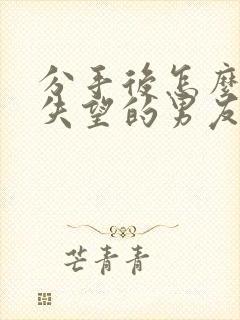 分手後怎麼
失望的男友
芒青青